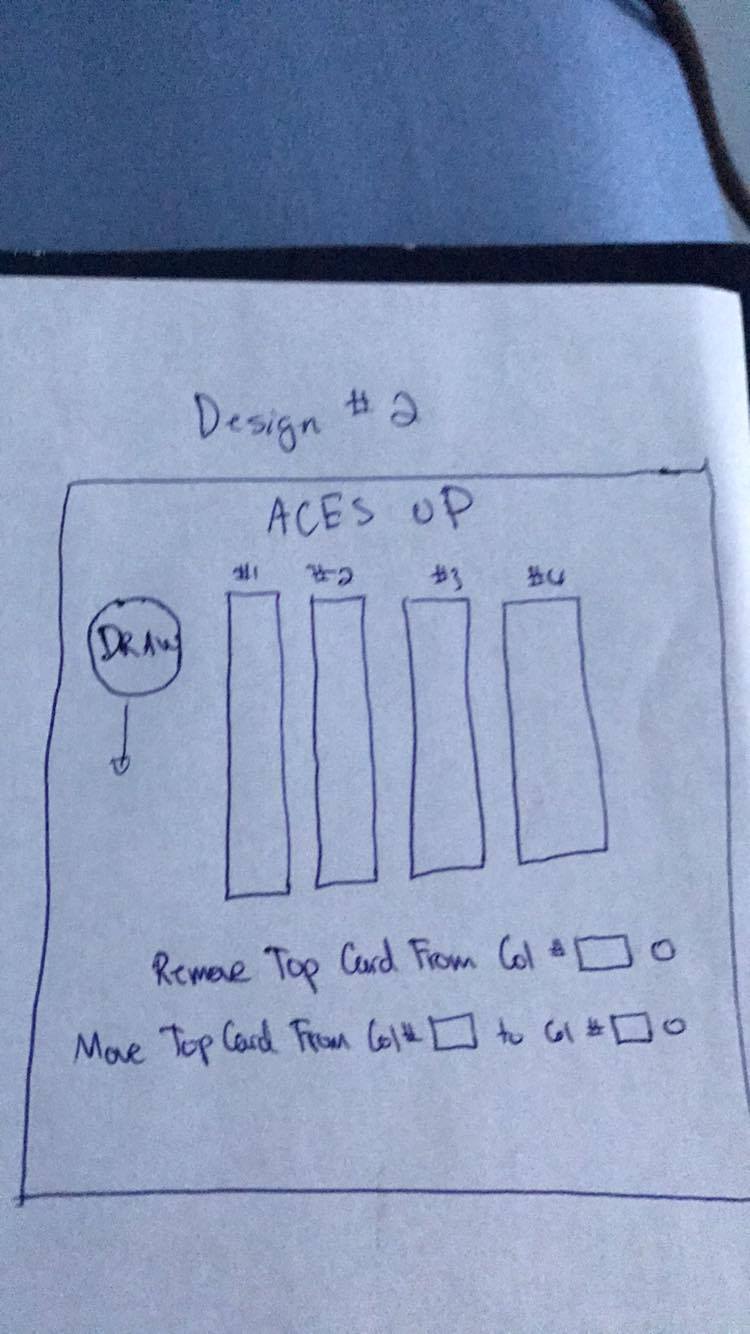 Design #2
ACES UP
#1 #2 #3 #4
DRAW
Remove Top Card From Col #
Move Top Card From Col # to Col #